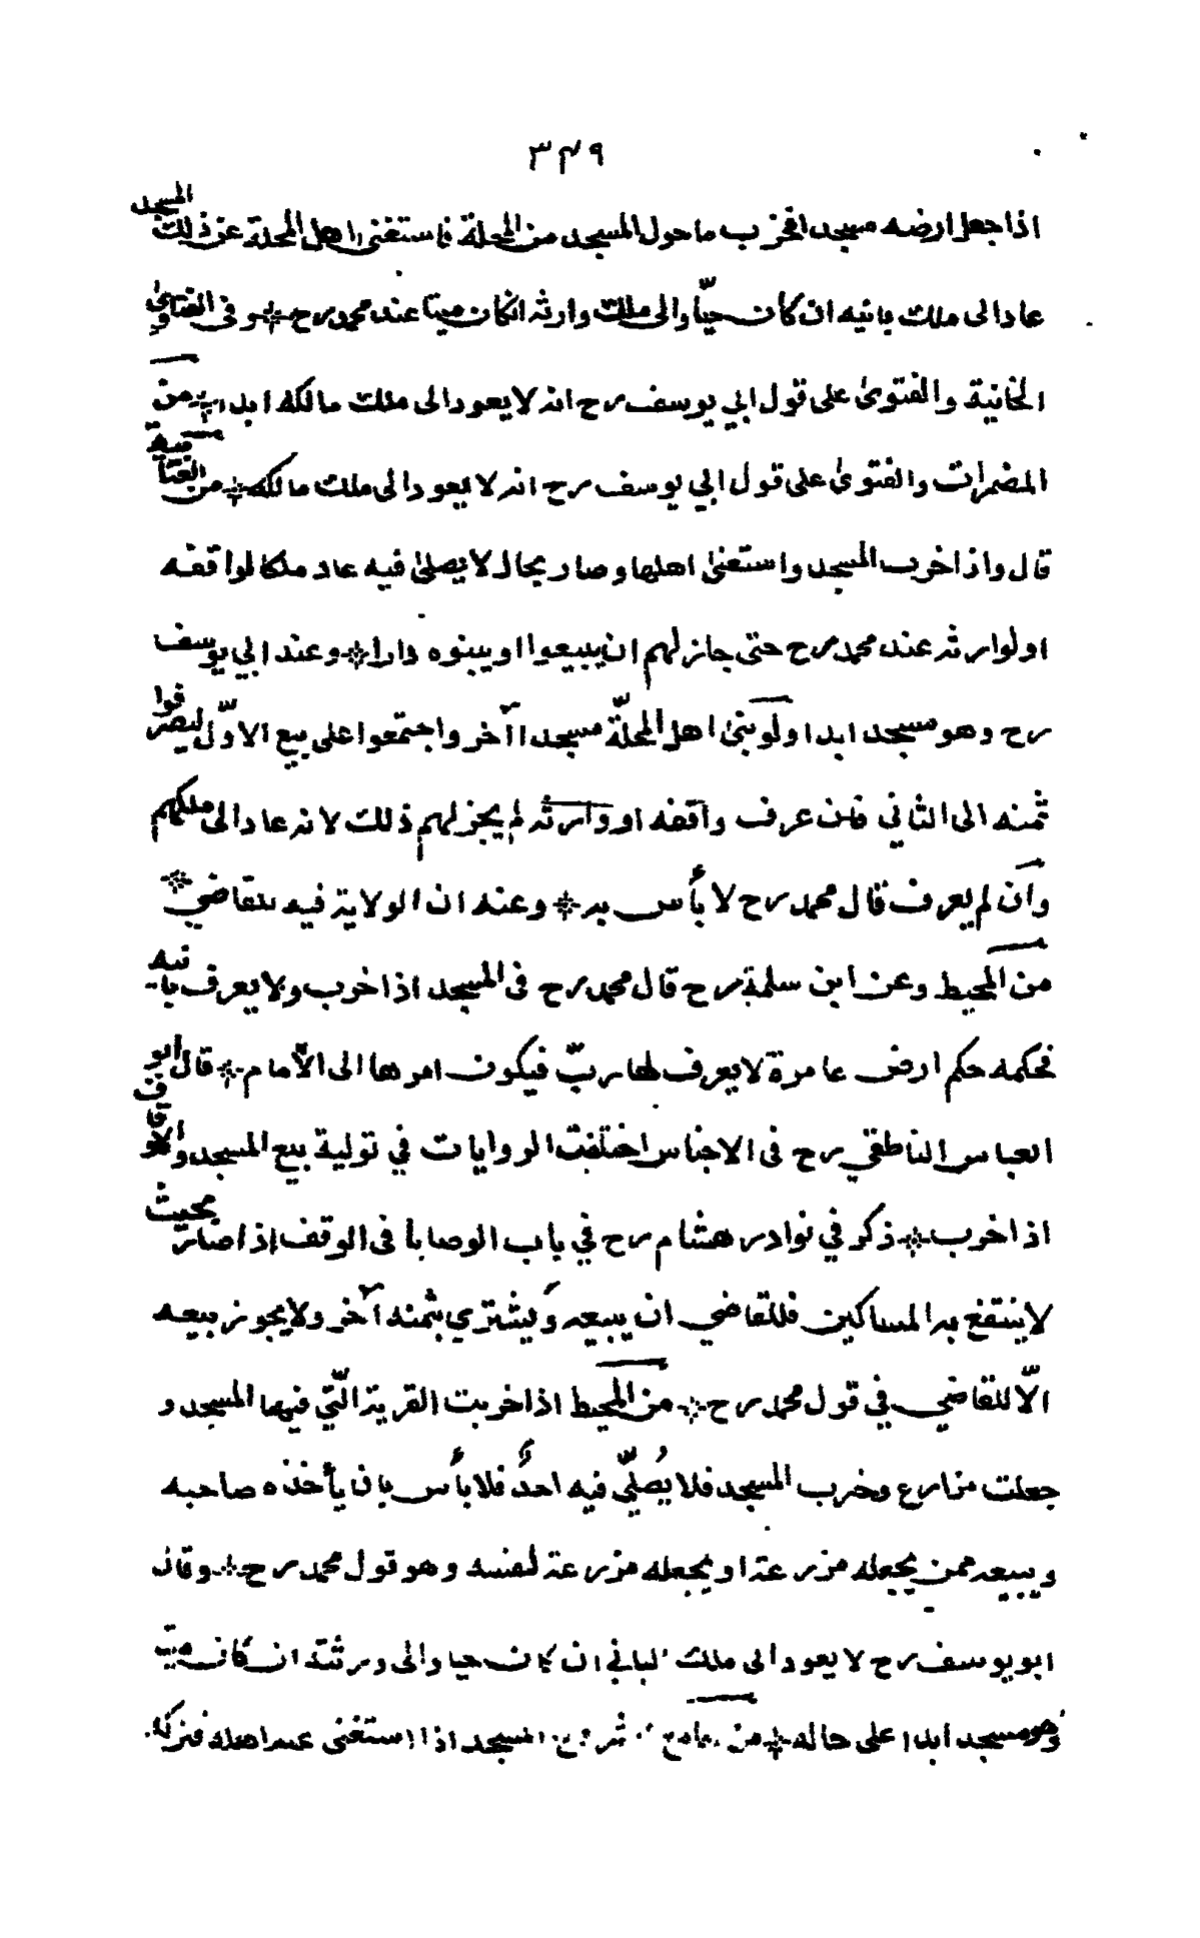 ٣٤٩
اذا جعل ارضه مسجدا فخرب ما حول المسجد من المحلة فاستغنى اهل المحلة عن ذلك المسجد
عاد الى ملك بانيه ان كان حيّا والى ملك وارثه انكان ميتا عند محمد رح ※ وفى الفتاوى
الخانية والفتوىٰ على قول ابي يوسف رح انه لا يعود الى ملك مالكه ابدا ※ من
المضمرات والفتوىٰ على قول ابي يوسف رح انه لا يعود الى ملك مالكه ※ من العتابية
قال واذا خرب المسجد واستغنىٰ اهلها وصار بحال لا يصلىٰ فيه عاد ملكا لواقفه
اولوارثه عند محمد رح حتى جاز لهم ان يبيعوا او يبنوه دارا ※ وعند ابي يوسف
رح وهو مسجد ابدا ولو بنىٰ اهل المحلّة مسجدا آخر واجتمعوا على بيع الاوّل ليصرفوا
ثمنه الى الثاني فان عرف واقفه او وارثه لم يجز لهم ذلك لانه عاد الى ملكهم
وان لم يعرف قال محمد رح لا بأس به ※ وعنه ان الولاية فيه للقاضي ※
من المحيط وعن ابن سلمة رح قال محمد رح فى المسجد اذا خرب ولا يعرف بانيه
فحكمه حكم ارض عامرة لا يعرف لها ربّ فيكون امرها الى الأمام ※ قال ابو
العباس الناطقي رح فى الاجناس اختلفت الروايات في تولية بيع المسجد والاوقاف
اذا خرب ※ ذكر في نوادر هشام رح في باب الوصايا فى الوقف اذا صار بحيث
لا ينتفع به المساكين فللقاضي ان يبيعه ويشتري بثمنه آخر ولا يجوز بيعه
الّا للقاضي في قول محمد رح ※ من المحيط اذا خربت القرية الّتي فيها المسجد و
جعلت مزارع وخرب المسجد فلا يُصلّي فيه احدٌ فلا بأس بان يأخذه صاحبه
ويبيعه ممن يجعله مزرعة او يجعله مزرعة لنفسه وهو قول محمد رح ※ وقال
ابو يوسف رح لا يعود الى ملك الباني ان كان حيا والى ورثته ان كان ميتا
وهو مسجد ابدا على حاله ※ من المسجد اذا استغنى عنه اهله